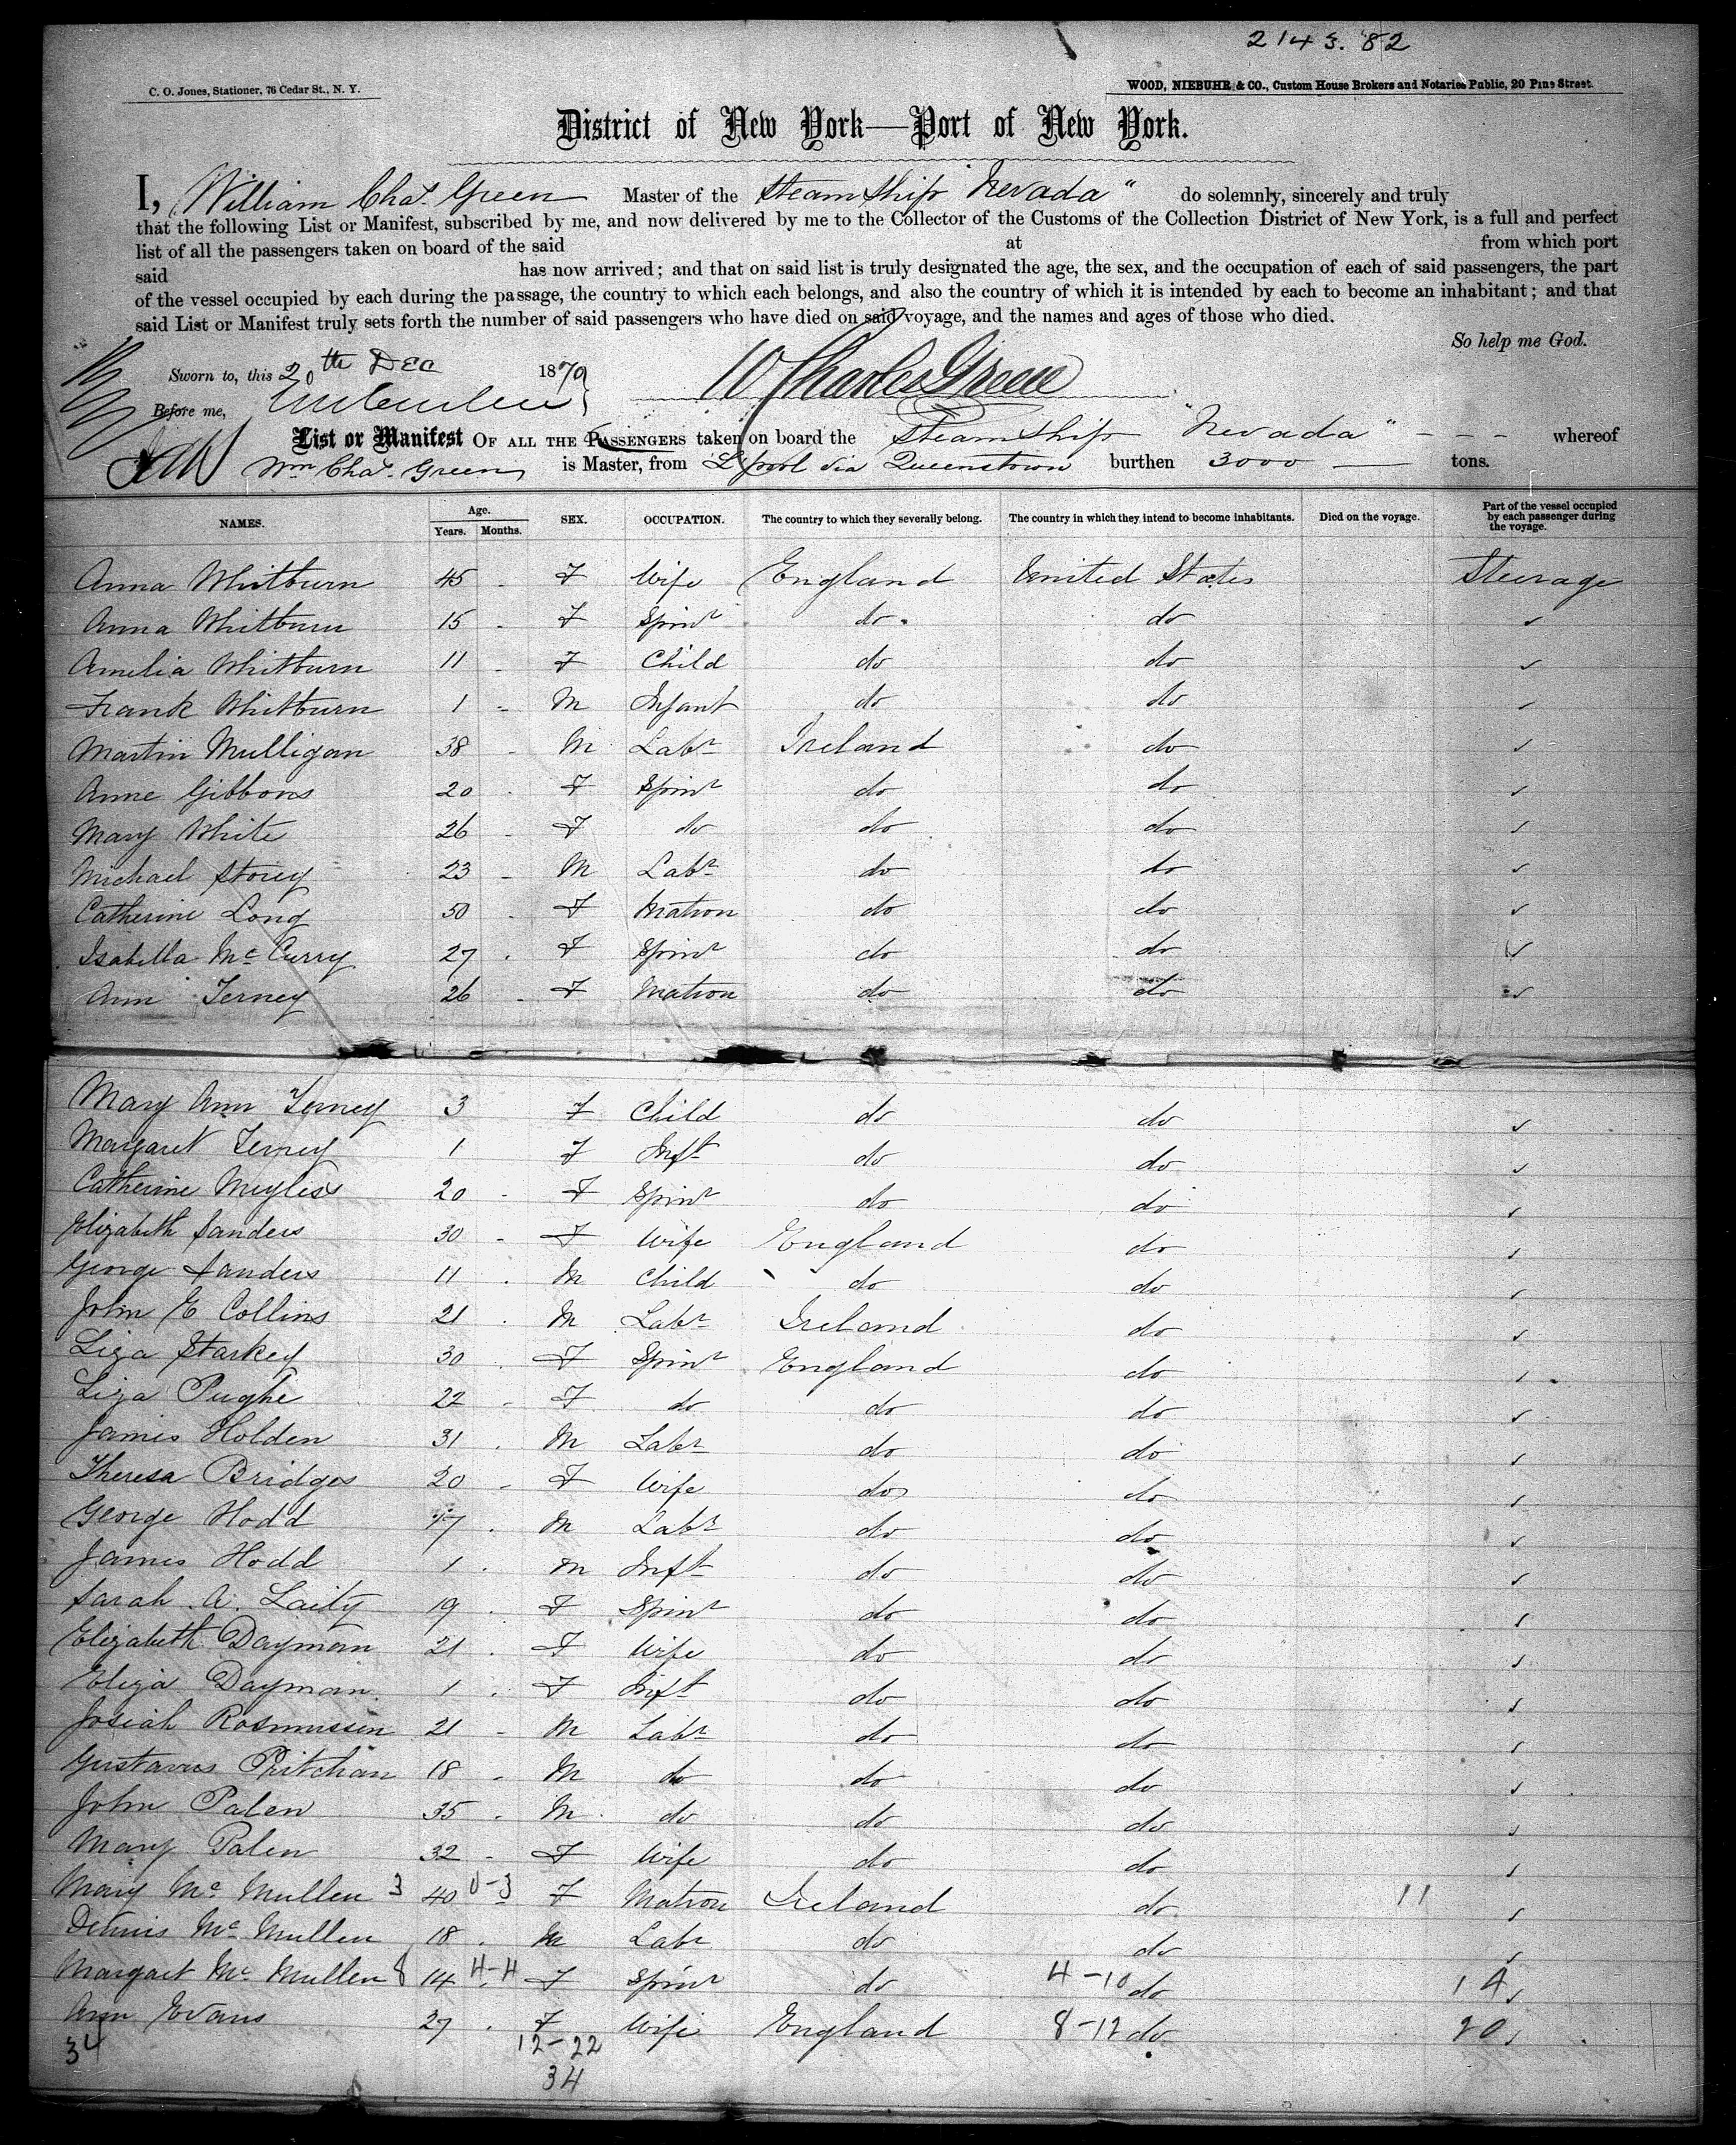 2143. '82
C. O. Jones, Stationer, 76 Cedar St., N. Y.
WOOD, NIEBUHR & CO., Custom House Brokers and Notaries Public, 20 Pine Street.
District of New York—Port of New York.
I, William Chas. Green Master of the Steam Ship "Nevada" do solemnly, sincerely and truly
that the following List or Manifest, subscribed by me, and now delivered by me to the Collector of the Customs of the Collection District of New York, is a full and perfect
list of all the passengers taken on board of the said at from which port
said has now arrived; and that on said list is truly designated the age, the sex, and the occupation of each of said passengers, the part
of the vessel occupied by each during the passage, the country to which each belongs, and also the country of which it is intended by each to become an inhabitant; and that
said List or Manifest truly sets forth the number of said passengers who have died on said voyage, and the names and ages of those who died.
So help me God.
Sworn to, this 20th Dec 1879
W Charles Green
Before me,
List or Manifest OF ALL THE PASSENGERS taken on board the Steam Ship "Nevada" - - - whereof
Wm Chas. Green is Master, from L'pool via Queenstown burthen 3000 — tons.
NAMES. Age. Years. Months. SEX. OCCUPATION. The country to which they severally belong. The country in which they intend to become inhabitants. Died on the voyage. Part of the vessel occupied by each passenger during the voyage.
Anna Whitburn 45 - F Wife England United States Steerage
Anna Whitburn 15 - F Spinr do do ✓
Amelia Whitburn 11 - F Child do do ✓
Frank Whitburn 1 - M Infant do do ✓
Martin Mulligan 38 - M Labr Ireland do ✓
Anne Gibbons 20 - F Spinr do do ✓
Mary White 26 - F do do do ✓
Michael Storey 23 - M Labr do do ✓
Catherine Long 50 - F Matron do do ✓
Isabella McCurry 27 - F Spinr do do ✓
Ann Terney 26 - F Matron do do ✓
Mary Ann Terney 3 F Child do do ✓
Margaret Terney 1 F Inft do do ✓
Catherine 20 - F Spinr do do ✓
Elizabeth Sanders 30 - F Wife England do ✓
George Sanders 11 - M Child do do ✓
John E Collins 21 - M Labr Ireland do ✓
Liza Starkey 30 - F Spinr England do ✓
Liza Pughe 22 - F do do do ✓
James Holden 31 - M Labr do do ✓
Theresa Bridges 20 - F Wife do do ✓
George Hodd 17 - M Labr do do ✓
James Hodd 1 - M Inft do do ✓
Sarah A. Laity 19 - F Spinr do do ✓
Elizabeth Dayman 21 - F Wife do do ✓
Eliza Dayman 1 - F Inft do do ✓
Josiah Rosmussen 21 - M Labr do do ✓
Gustavus Pritchan 18 - M do do do ✓
John Palen 35 - M do do do ✓
Mary Palen 32 - F Wife do do ✓
Mary McMullen 3 40 0-3 F Matron Ireland do 11 ✓
Dennis McMullen 18 - M Labr do do ✓
Margaret McMullen 8 14 4-4 F Spinr do 4-10 do 14 ✓
Ann Evans 27 - F Wife England 8-12 do 20 ✓
34 12-22
34